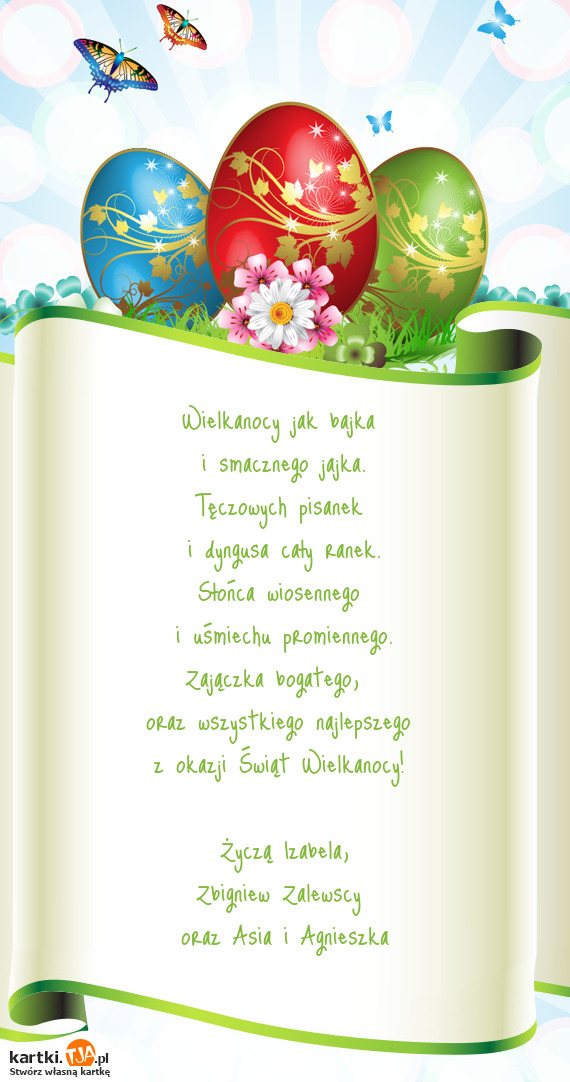 Wielkanocy jak bajka
i smacznego jajka.
Tęczowych pisanek
i dyngusa cały ranek.
Słońca wiosennego
i uśmiechu promiennego.
Zajączka bogatego,
oraz wszystkiego najlepszego
z okazji Świąt Wielkanocy!
Życzą Izabela,
Zbigniew Zalewscy
oraz Asia i Agnieszka
kartki.TJA.pl
Stwórz własną kartkę